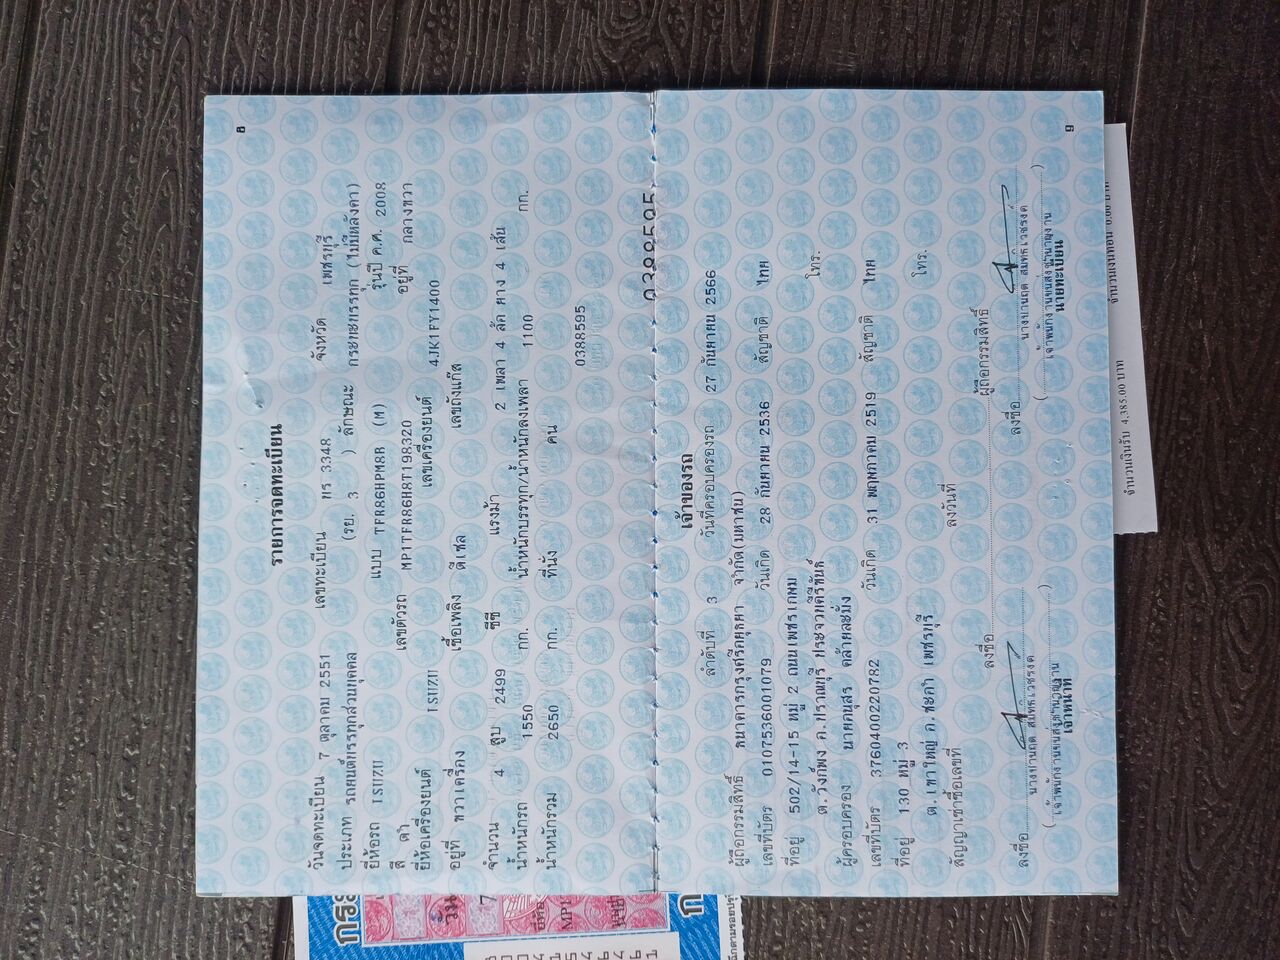 8
รายการจดทะเบียน
วันจดทะเบียน 7 ตุลาคม 2551 เลขทะเบียน 3348 จังหวัด เพชรบุรี
ประเภท รถยนต์บรรทุกส่วนบุคคล (รย. 3 ) ลักษณะ กระบะบรรทุก (ไม่มีหลังคา)
ยี่ห้อรถ ISUZU แบบ TFR86HPM8R (M) รุ่นปี ค.ศ. 2008
สี ดำ เลขตัวรถ MP1TFR86H8T198320 อยู่ที่ กลางขวา
ยี่ห้อเครื่องยนต์ ISUZU เลขเครื่องยนต์ 4JK1FY1400
อยู่ที่ ขวาเครื่อง เชื้อเพลิง ดีเซล เลขถังแก๊ส
จำนวน 4 สูบ 2499 ซีซี แรงม้า 2 เพลา 4 ล้อ ยาง 4 เส้น
น้ำหนักรถ 1550 กก. น้ำหนักบรรทุก/น้ำหนักลงเพลา 1100 กก.
น้ำหนักรวม 2650 กก. ที่นั่ง คน
0388595
0388595
เจ้าของรถ
ลำดับที่ 3 วันที่ครอบครองรถ 27 กันยายน 2566
ผู้ถือกรรมสิทธิ์ ธนาคารกรุงศรีอยุธยา จำกัด(มหาชน)
เลขที่บัตร 0107536001079 วันเกิด 28 กันยายน 2536 สัญชาติ ไทย
ที่อยู่ 502/14-15 หมู่ 2 ถนนเพชรเกษม
ต.วังก์พง อ.ปราณบุรี ประจวบคีรีขันธ์ โทร.
ผู้ครอบครอง นายดนุสร คล้ายละมั่ง
เลขที่บัตร 3760400220782 วันเกิด 31 พฤษภาคม 2519 สัญชาติ ไทย
ที่อยู่ 130 หมู่ 3
ต.เขาใหญ่ อ.ชะอำ เพชรบุรี โทร.
สัญญาเช่าซื้อเลขที่ ลงวันที่
ลงชื่อ ผู้ถือกรรมสิทธิ์
ลงชื่อ ลงชื่อ
(เจ้าพนักงานขนส่งชำนาญงาน) (เจ้าพนักงานขนส่งชำนาญงาน)
เจ้าหน้าที่ นายทะเบียน
9
จำนวนเงินรับ 4,385.00 บาท จำนวนเงินทอน 0.00 บาท
7
MP1